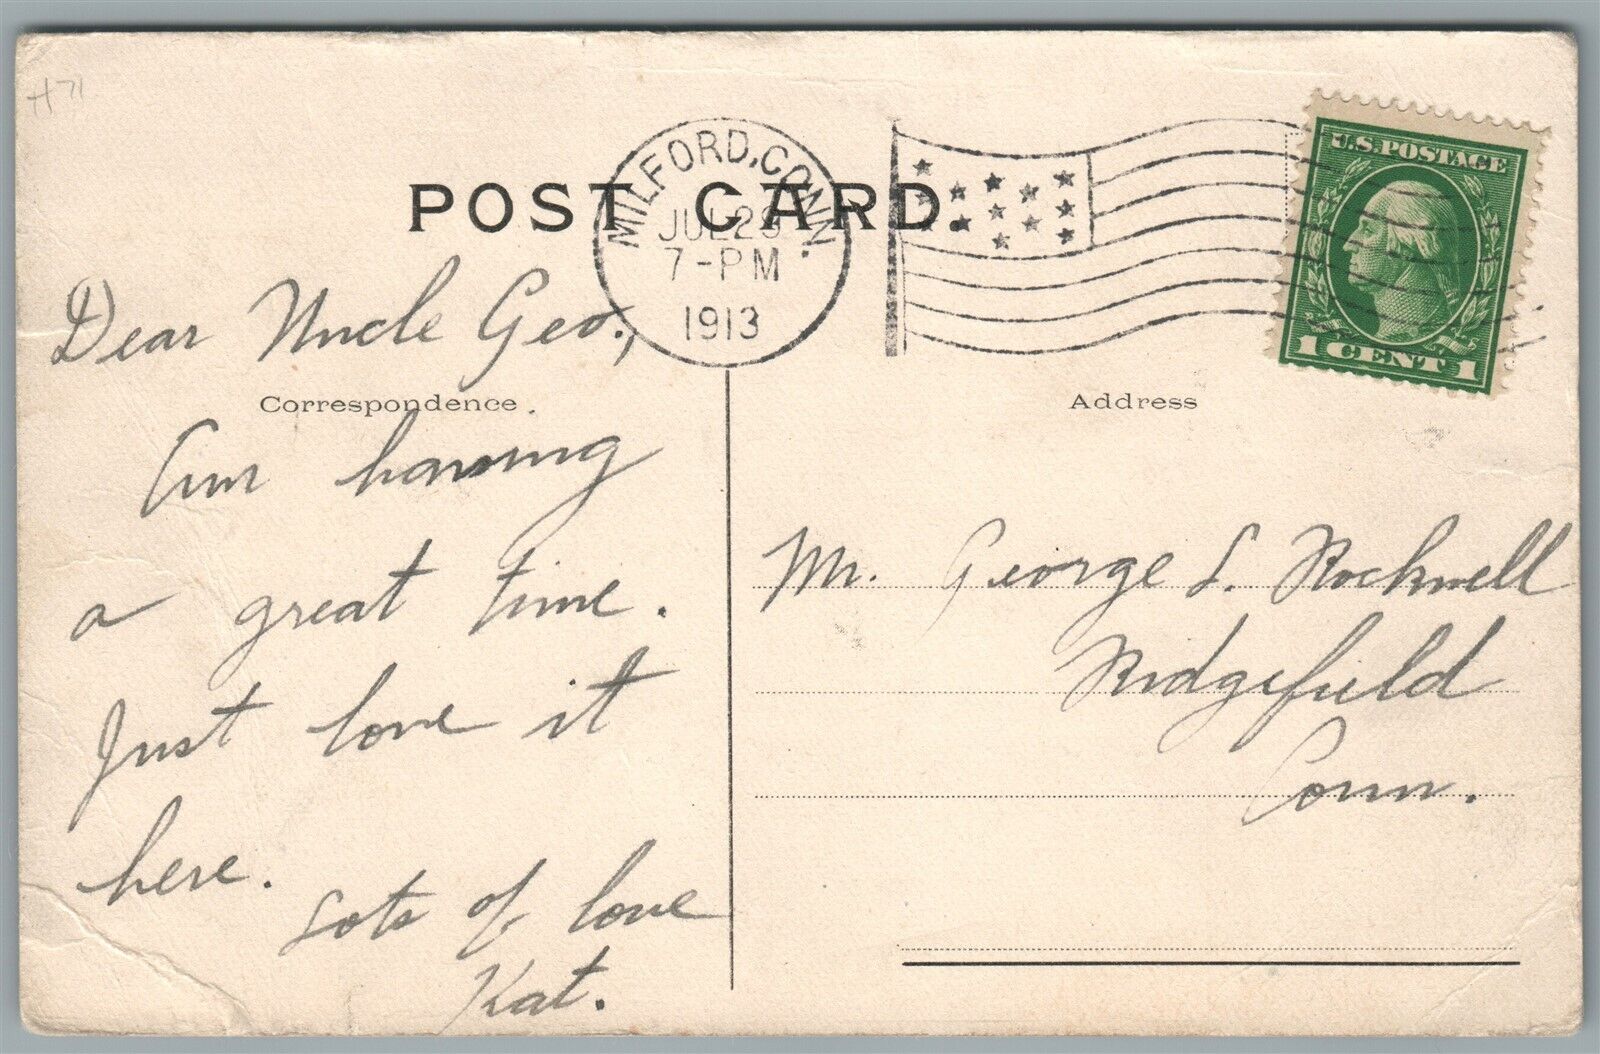 H71
MILFORD, CONN.
JUL 29
7-PM
1913
U.S. POSTAGE
1 CENT 1
POST CARD.
Dear Uncle Geo.,
Correspondence
Am having
a great time.
Just love it
here.
Lots of love
Kat.
Address
Mr. George L. Rockwell
Ridgefield
Conn.